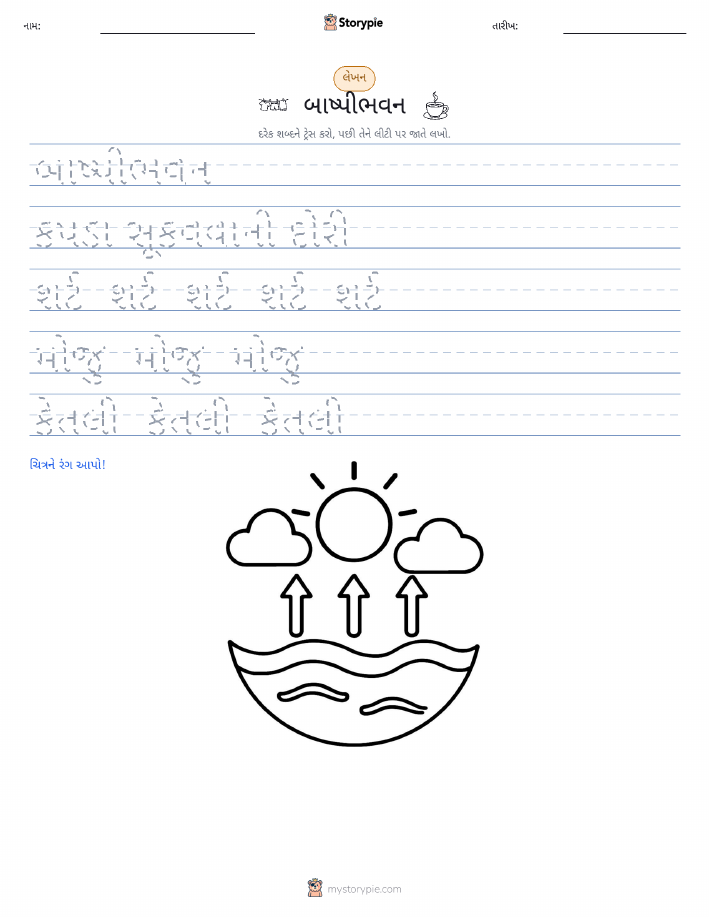 નામ:
Storypie
તારીખ:
લેખન
બાષ્પીભવન
દરેક શબ્દને ટ્રેસ કરો, પછી તેને લીટી પર જાતે લખો.
બાષ્પીભવન
કપડા સૂકવવાની દોરી
શર્ટ શર્ટ શર્ટ શર્ટ શર્ટ
મોજુ મોજુ મોજુ
કેતલી કેતલી કેતલી
ચિત્રને રંગ આપો!
mystorypie.com